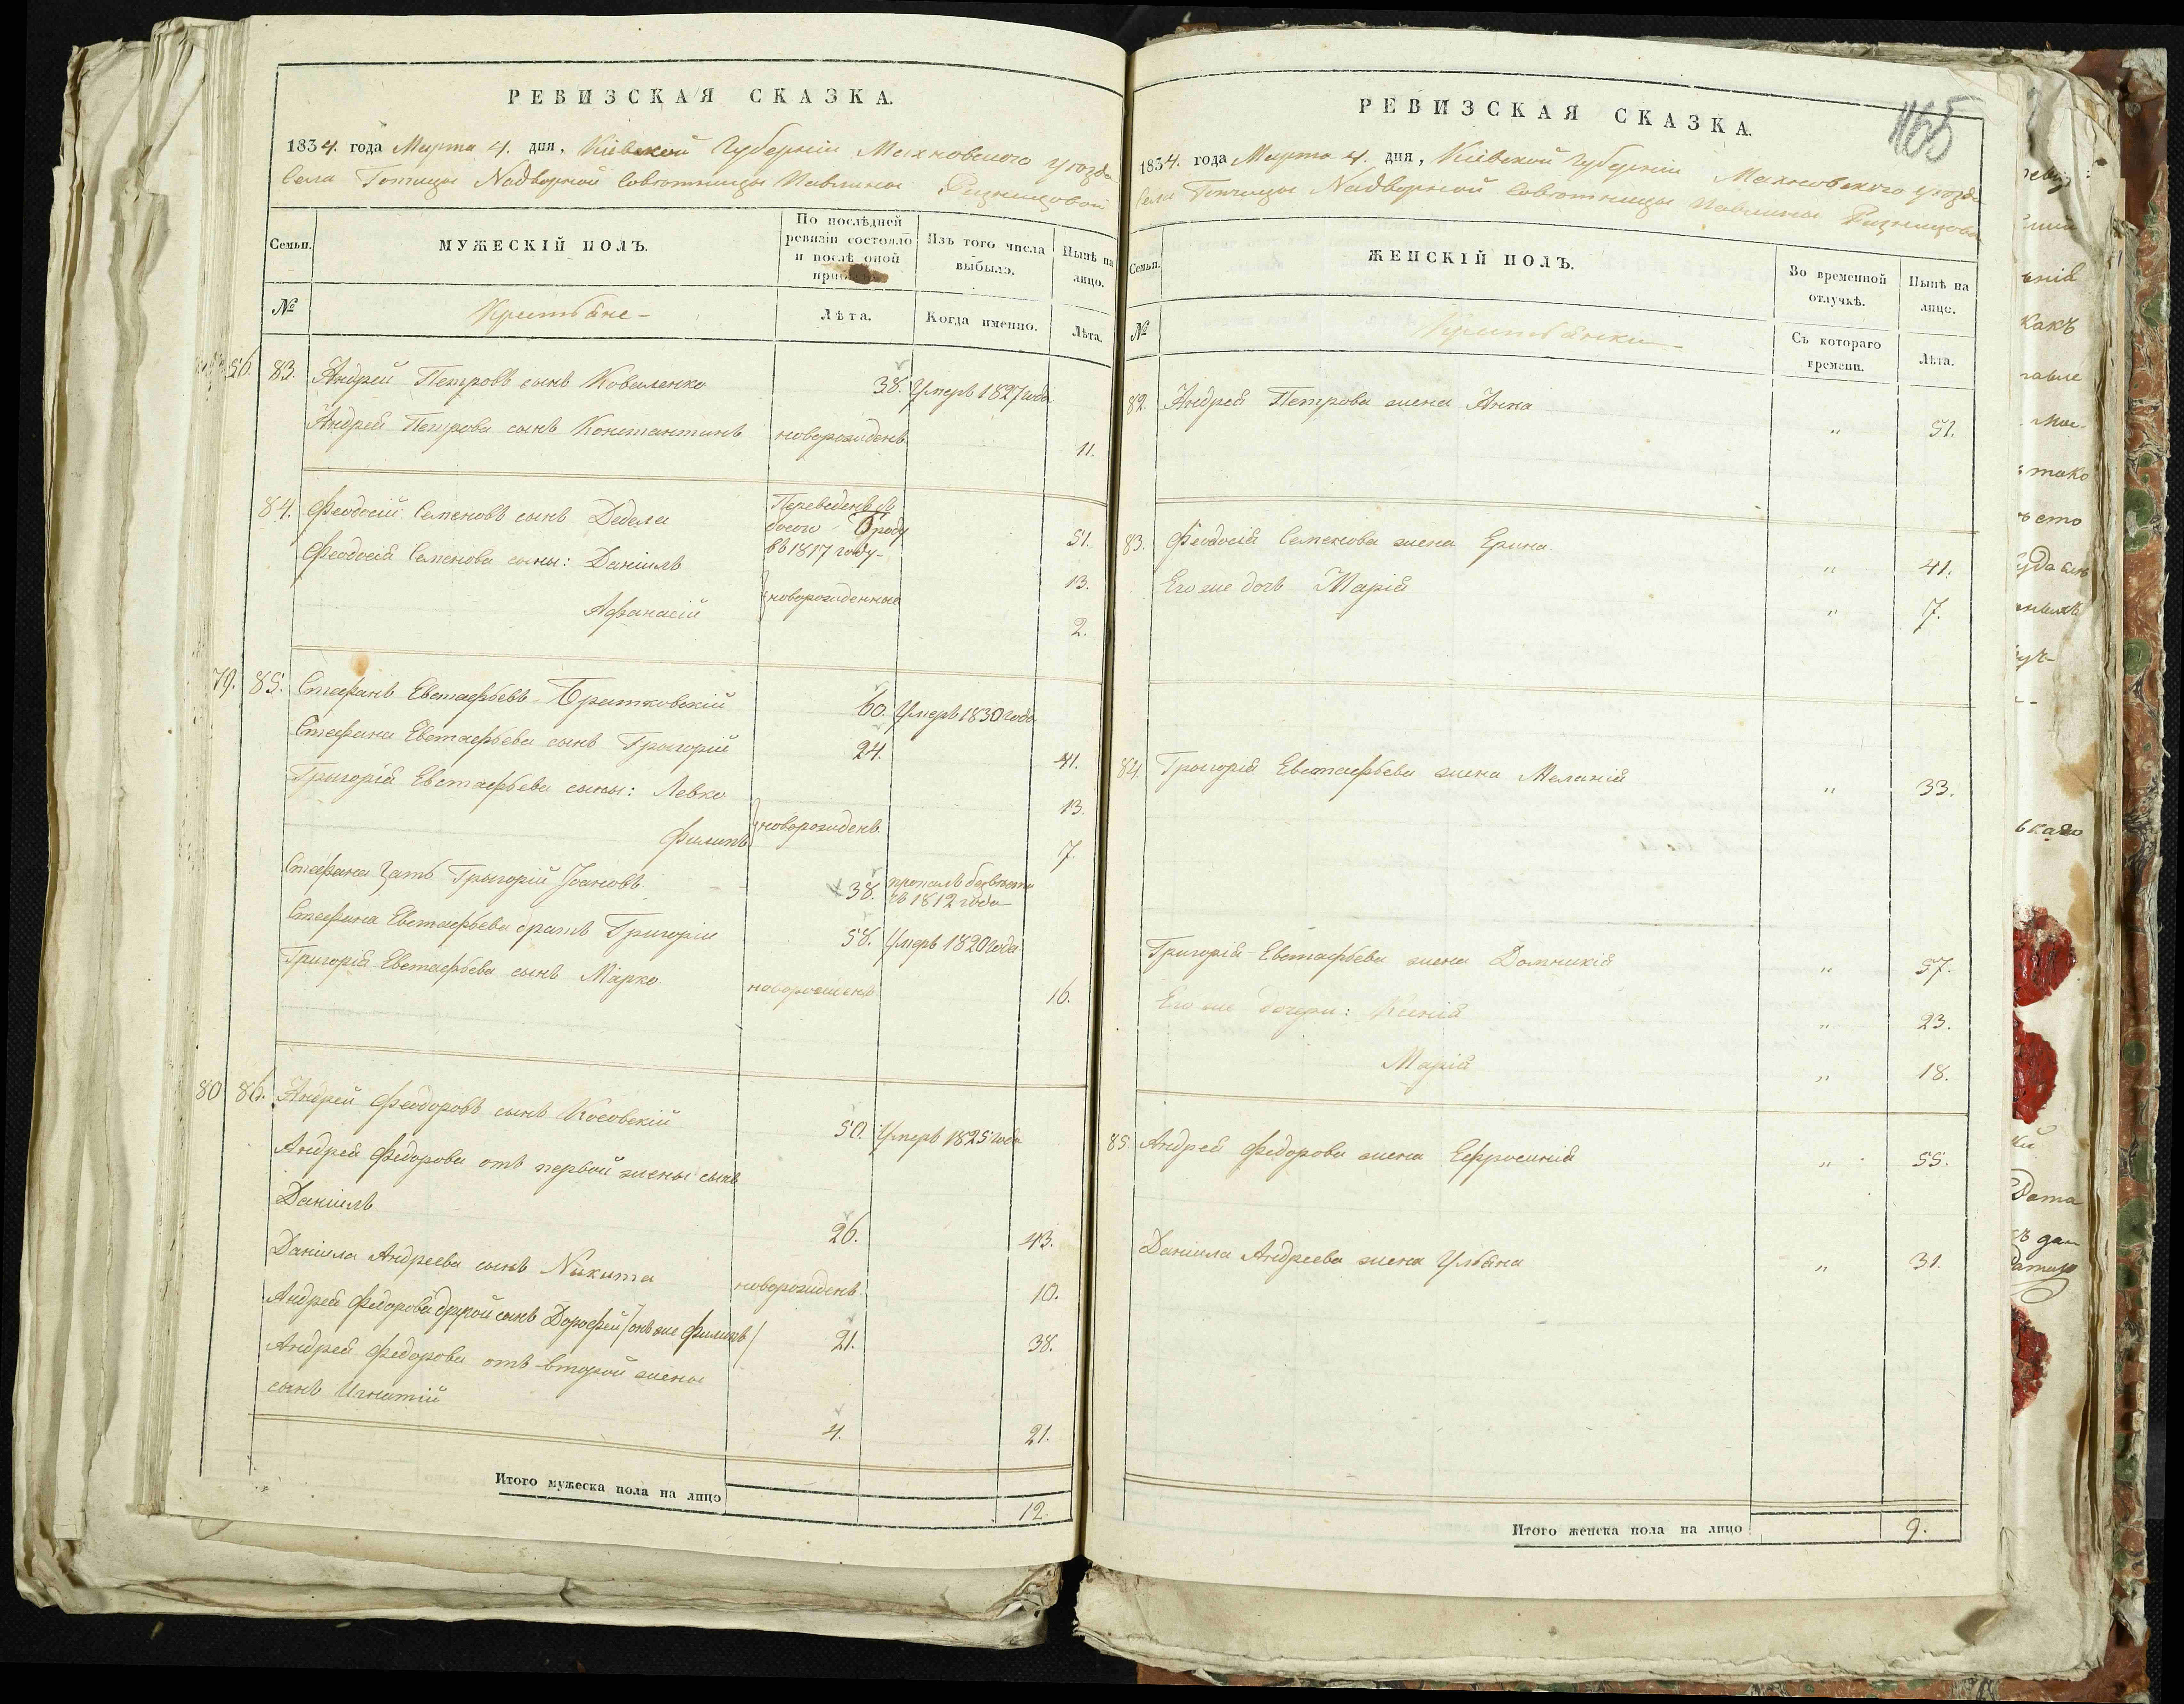 РЕВИЗСКАЯ СКАЗКА.
1834. года Марта 4. дня, Кіевской Губерніи Махновского уѣзда
Села Надворной Совѣтницы Павлины
Семьи. МУЖЕСКІЙ ПОЛЪ. По послѣдней ревизіи состояло и послѣ оной Изъ того числа выбыло. Нынѣ на лицо.
№ Крестьяне Лѣта. Когда именно. Лѣта.
56. 83. Андрей Петровъ сынъ Коваленко 38. Умеръ 1827 года
Андрея Петрова сынъ Константинъ новорожденъ 11.
84. Феодосій Семеновъ сынъ Дедела Переведенъ въ 1817 году 51.
Феодосія Семенова сыны: Даніилъ новорожденные 13.
Афанасій 2.
79. 85. Стефанъ Евстафьевъ Братковскій 60. Умеръ 1830 года
Стефана Евстафьева сынъ Григорій 24. 41.
Григорія Евстафьева сыны: Левко новорожденъ 13.
Филипъ 7.
Стефана зять Григорій Іоановъ 38. пропалъ безвѣсти въ 1812 года
Стефана Евстафьева братъ Григорій 58. Умеръ 1820 года
Григорія Евстафьева сынъ Марко новорожденъ 16.
80 86. Андрей Феодоровъ сынъ Косовскій 50. Умеръ 1825 года
Андрея Федорова отъ первой жены сынъ
Даніилъ 26. 43.
Даніила Андреева сынъ Никита новорожденъ 10.
Андрея Федорова другой сынъ Дорофей /онъ же Филипъ/ 21. 38.
Андрея Федорова отъ второй жены
сынъ Игнатій 4. 21.
Итого мужеска пола на лицо 12.
165
РЕВИЗСКАЯ СКАЗКА.
1834. года Марта 4. дня, Кіевской Губерніи Махновского уѣзда
Села Надворной Совѣтницы Павлины
Семьи. ЖЕНСКІЙ ПОЛЪ. Во временной отлучкѣ. Нынѣ на лицо.
№ Крестьянки Съ котораго времени. Лѣта.
82. Андрея Петрова жена Анна " 51.
83. Феодосія Семенова жена Ерина " 41.
Его же дочь Марія " 7.
84. Григорія Евстафьева жена Меланія " 33.
Григорія Евстафьева жена Домникія " 57.
Его же дочери: Ксенія " 23.
Марія " 18.
85. Андрея Федорова жена Ефросинія " 55.
Даніила Андреева жена Ульяна " 31.
Итого женска пола на лицо 9.